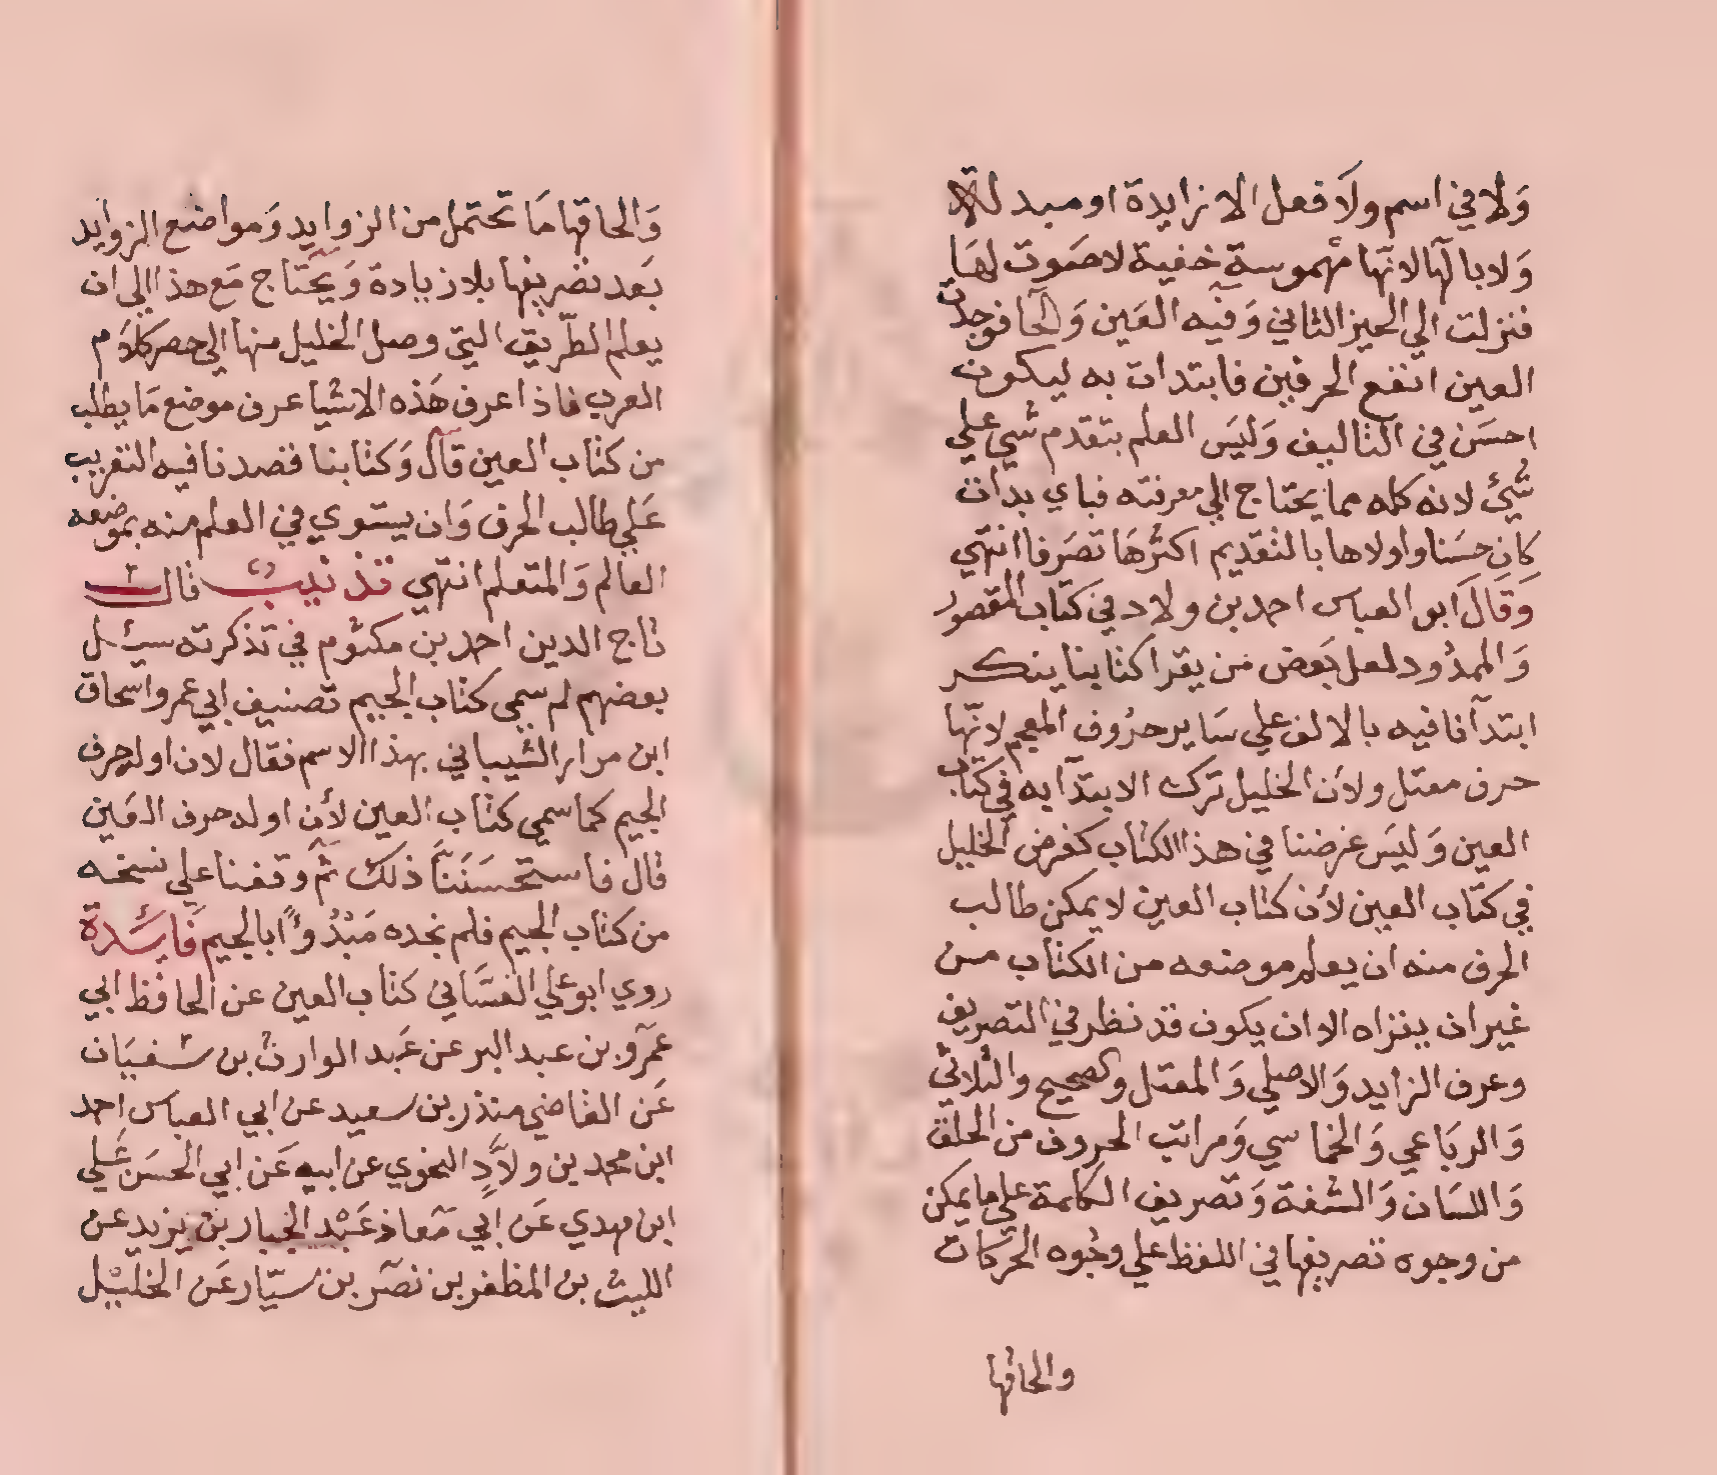 وَلا في اسم ولَا فعل الا زايدة او مبدلة
وَلا بالهَا لانّها مهموسة خفية لا صَوت لهَا
فنزلت الي الحيز الثاني وَفيه العَين وَالحا فوجدت
العين انضع الحرفين فابتدات به ليكون
احسَن في التاليف وَليسَ العلم بتقدم شي علي
شيئ لانه كله مما يحتاج الي معرفته فباي بدات
كان حسَنا واولاها بالتقديم اكثرهَا تصَرفا انتهي
وَقَالَ ابو العباس احمد بن ولاد في كتاب المقصور
وَالممدُود لعل بَعض من يقرا كتابنا ينكر
ابتدآنا فيه بالالف علي سَاير حرُوف المعجم لانّها
حرف معتل ولأن الخليل ترك الابتدآ به في كتاب
العين وَليسَ غرضنا في هذا الكتاب كغرض الخليل
في كتاب العين لأن كتاب العين لا يمكن طالب
الحرف منه ان يعلم موضعه من الكتاب من
غير ان يقراه الا ان يكون قد نظر في التصريف
وعرف الزايد وَالاصلي وَالمعتل والصحيح والثلاثي
وَالربَاعي وَالخماسي وَمراتب الحروف من الحلق
وَاللسَان وَالشفة وَتصريف الكلمة علي ما يمكن
من وجوه تصريفها في اللفظ علي وجُوه الحرَكات
والحاقها
وَالحاقها مَا تحتمل من الزوايد وَمواضع الزوايد
بَعد تصريفها بلا زيادة وَيحتاج مَع هذا الي ان
يعلم الطّريق التي وصل الخليل منها الي حصر كلاَم
العرب فاذا عرف هَذه الاشيا عرف موضع مَا يطلب
من كتاب العين قاَل وَكتابنا قصدنا فيه التقريب
عَلي طالب الحرف وَان يستوي في العلم منه بموضعه
العالم وَالمتعلم انتهي تذنيب قال
تاج الدين احمد بن مكتوم في تذكرته سيئل
بعضهم لم سمي كتاب الجيم تصنيف ابي عمرو اسحاق
ابن مرار الشيباني بهذا الاسم فقال لان اوله حرف
الجيم كما سمي كتاب العين لأن اوله حرف العَين
قال فاستحسَنَنّا ذلك ثمّ وقفنا علي نسخه
من كتاب الجيم فلم نجده مَبْدُوءًا بالجيم فَايَدة
روي ابو علي الغسَّاني كتاب العين عن الحافظ ابي
عمرو بن عبد البر عن عَبد الوارث بن سفيَان
عَن القاضي منذر بن سعيد عن ابي العباس احمد
ابن محمد بن ولاَّدٍ النحوي عن ابيه عَن ابي الحسَن عَلي
ابن مهدي عَن ابي مَعاذ عَبْد الجبار بن يزيد عن
الليث بن المظفر بن نصَر بن سيّار عَن الخليْل